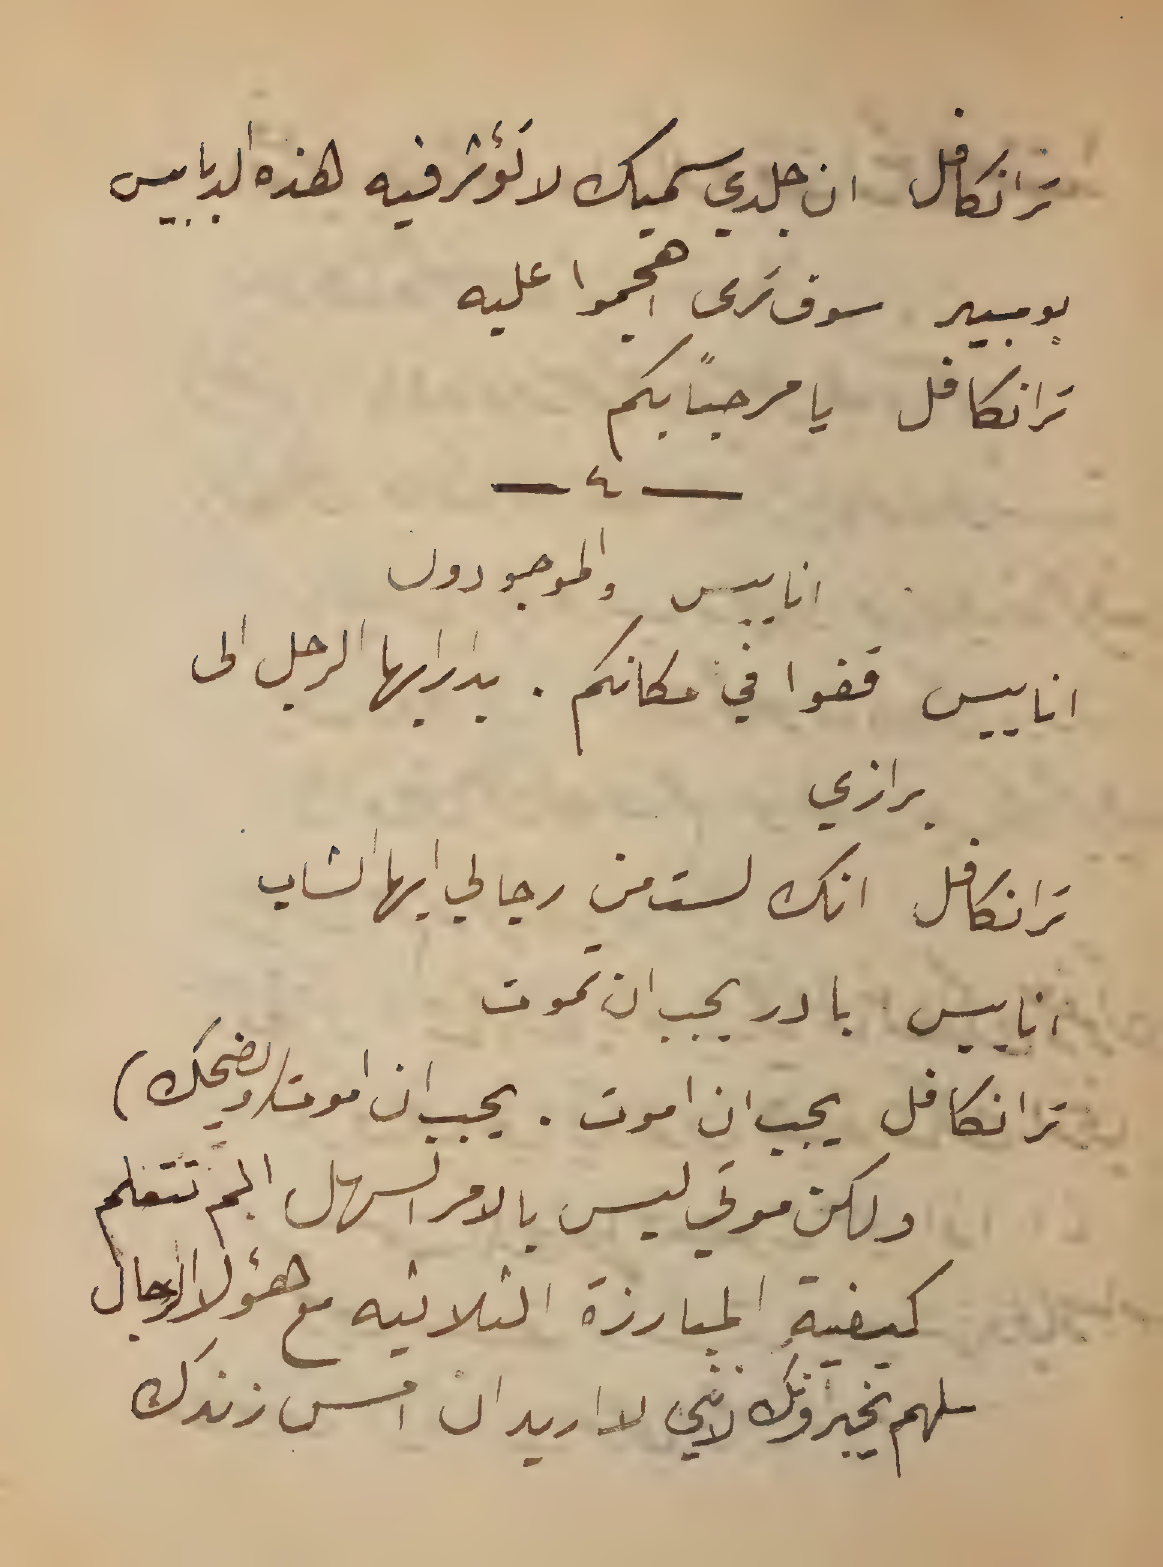 ترانكافل ان جلدي سميك لا تؤثر فيه هذه الدبابيس
بومبير سوف ترى اهجموا عليه
ترانكافل يا مرحباً بكم
— ٤ —
اناييس والموجودون
اناييس قفوا في مكانكم . بدار ايها الرجل الى
برازي
ترانكافل انك لست من رجالي ايها الشاب
اناييس بادر يجب ان تموت
ترانكافل يجب ان اموت . يجب ان اموت (ويضحك)
ولكن موتي ليس بالامر السهل الم تتعلم
كيفية المبارزة الثلاثيه مع هؤلا الرجال
سلهم يخبرونك لانني لا اريد ان امس زندك